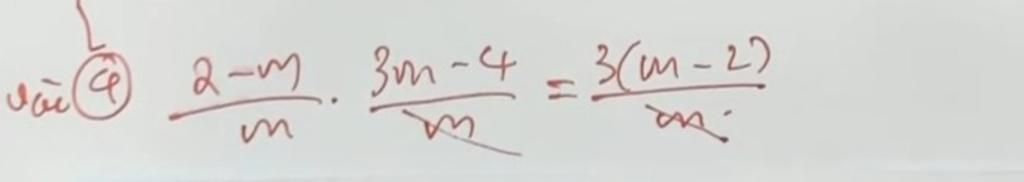 vào ④ $\frac{2-m}{m} \cdot \frac{3m-4}{m} = \frac{3(m-2)}{m}$